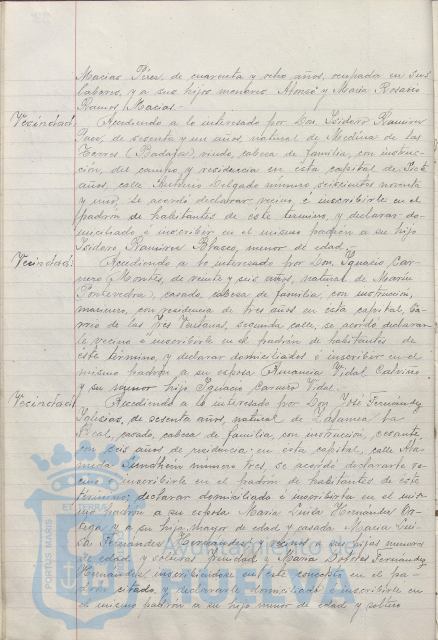 Macias Pérez, de cuarenta y ocho años, ocupada en sus
labores, y a sus hijos menores Alonso y María Rosario
Ramos Macias.-
Vecindad. Accediendo a lo interesado por Don Isidoro Ramirez
de sesenta y un años, natural de Medina de las
Torres (Badajoz), viudo, cabeza de familia, con instruc-
ción, del campo, y residencia en esta capital de siete
años, calle Antonio Delgado número seiscientos noventa
y uno, se acordó declarar vecino, e inscribirle en el
padrón de habitantes de este término, y declarar do-
miciliado e inscribir en el mismo padrón a su hijo
Isidoro Ramirez Blasco, menor de edad.-
Vecindad. Accediendo a lo interesado por Don Ignacio Car-
nero Montes, de veinte y seis años, natural de Marín
(Pontevedra), casado, cabeza de familia, con instrucción,
marinero, con residencia de tres años en esta capital, ba-
rreo de las tres Ventanas, segunda calle, se acordó declarar-
le vecino e inscribirle en el padrón de habitantes de
este término, y declarar domiciliados e inscribir en el
mismo padrón a su esposa Amancia Vidal Calviño
y su menor hijo Ignacio Carnero Vidal.
Vecindad. Accediendo a lo interesado por Don José Fernández
Iglesias, de sesenta años, natural de Zalamea la
Real, casado, cabeza de familia, con instrucción, cesante
con seis años de residencia en esta capital, calle Ala-
meda Sundheim número tres, se acordó declararle ve-
cino e inscribirle en el padrón de habitantes de este
término; declarar domiciliado e inscribirla en el mis-
mo padrón a su esposa María Luisa Hernandez Or-
tega y a su hija mayor de edad y casada María Lui-
sa Fernandez Hernandez, y a sus hijas menores
de edad y solteras Trinidad y María Dolores Fernandez
Hernandez inscribiendose en este concepto en el pa-
drón citado, y declararle domiciliado e inscribirle en
el mismo padrón a su hijo menor de edad y soltero
PORTUS MARIS ET TERRAE
Ayuntamiento de
HUELVA